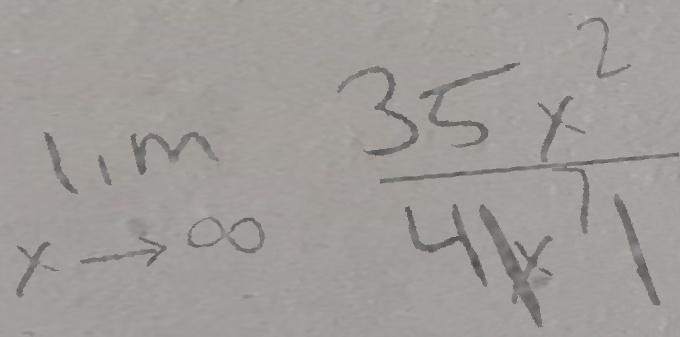 lim x→∞ 35x² / 4|x⁷|